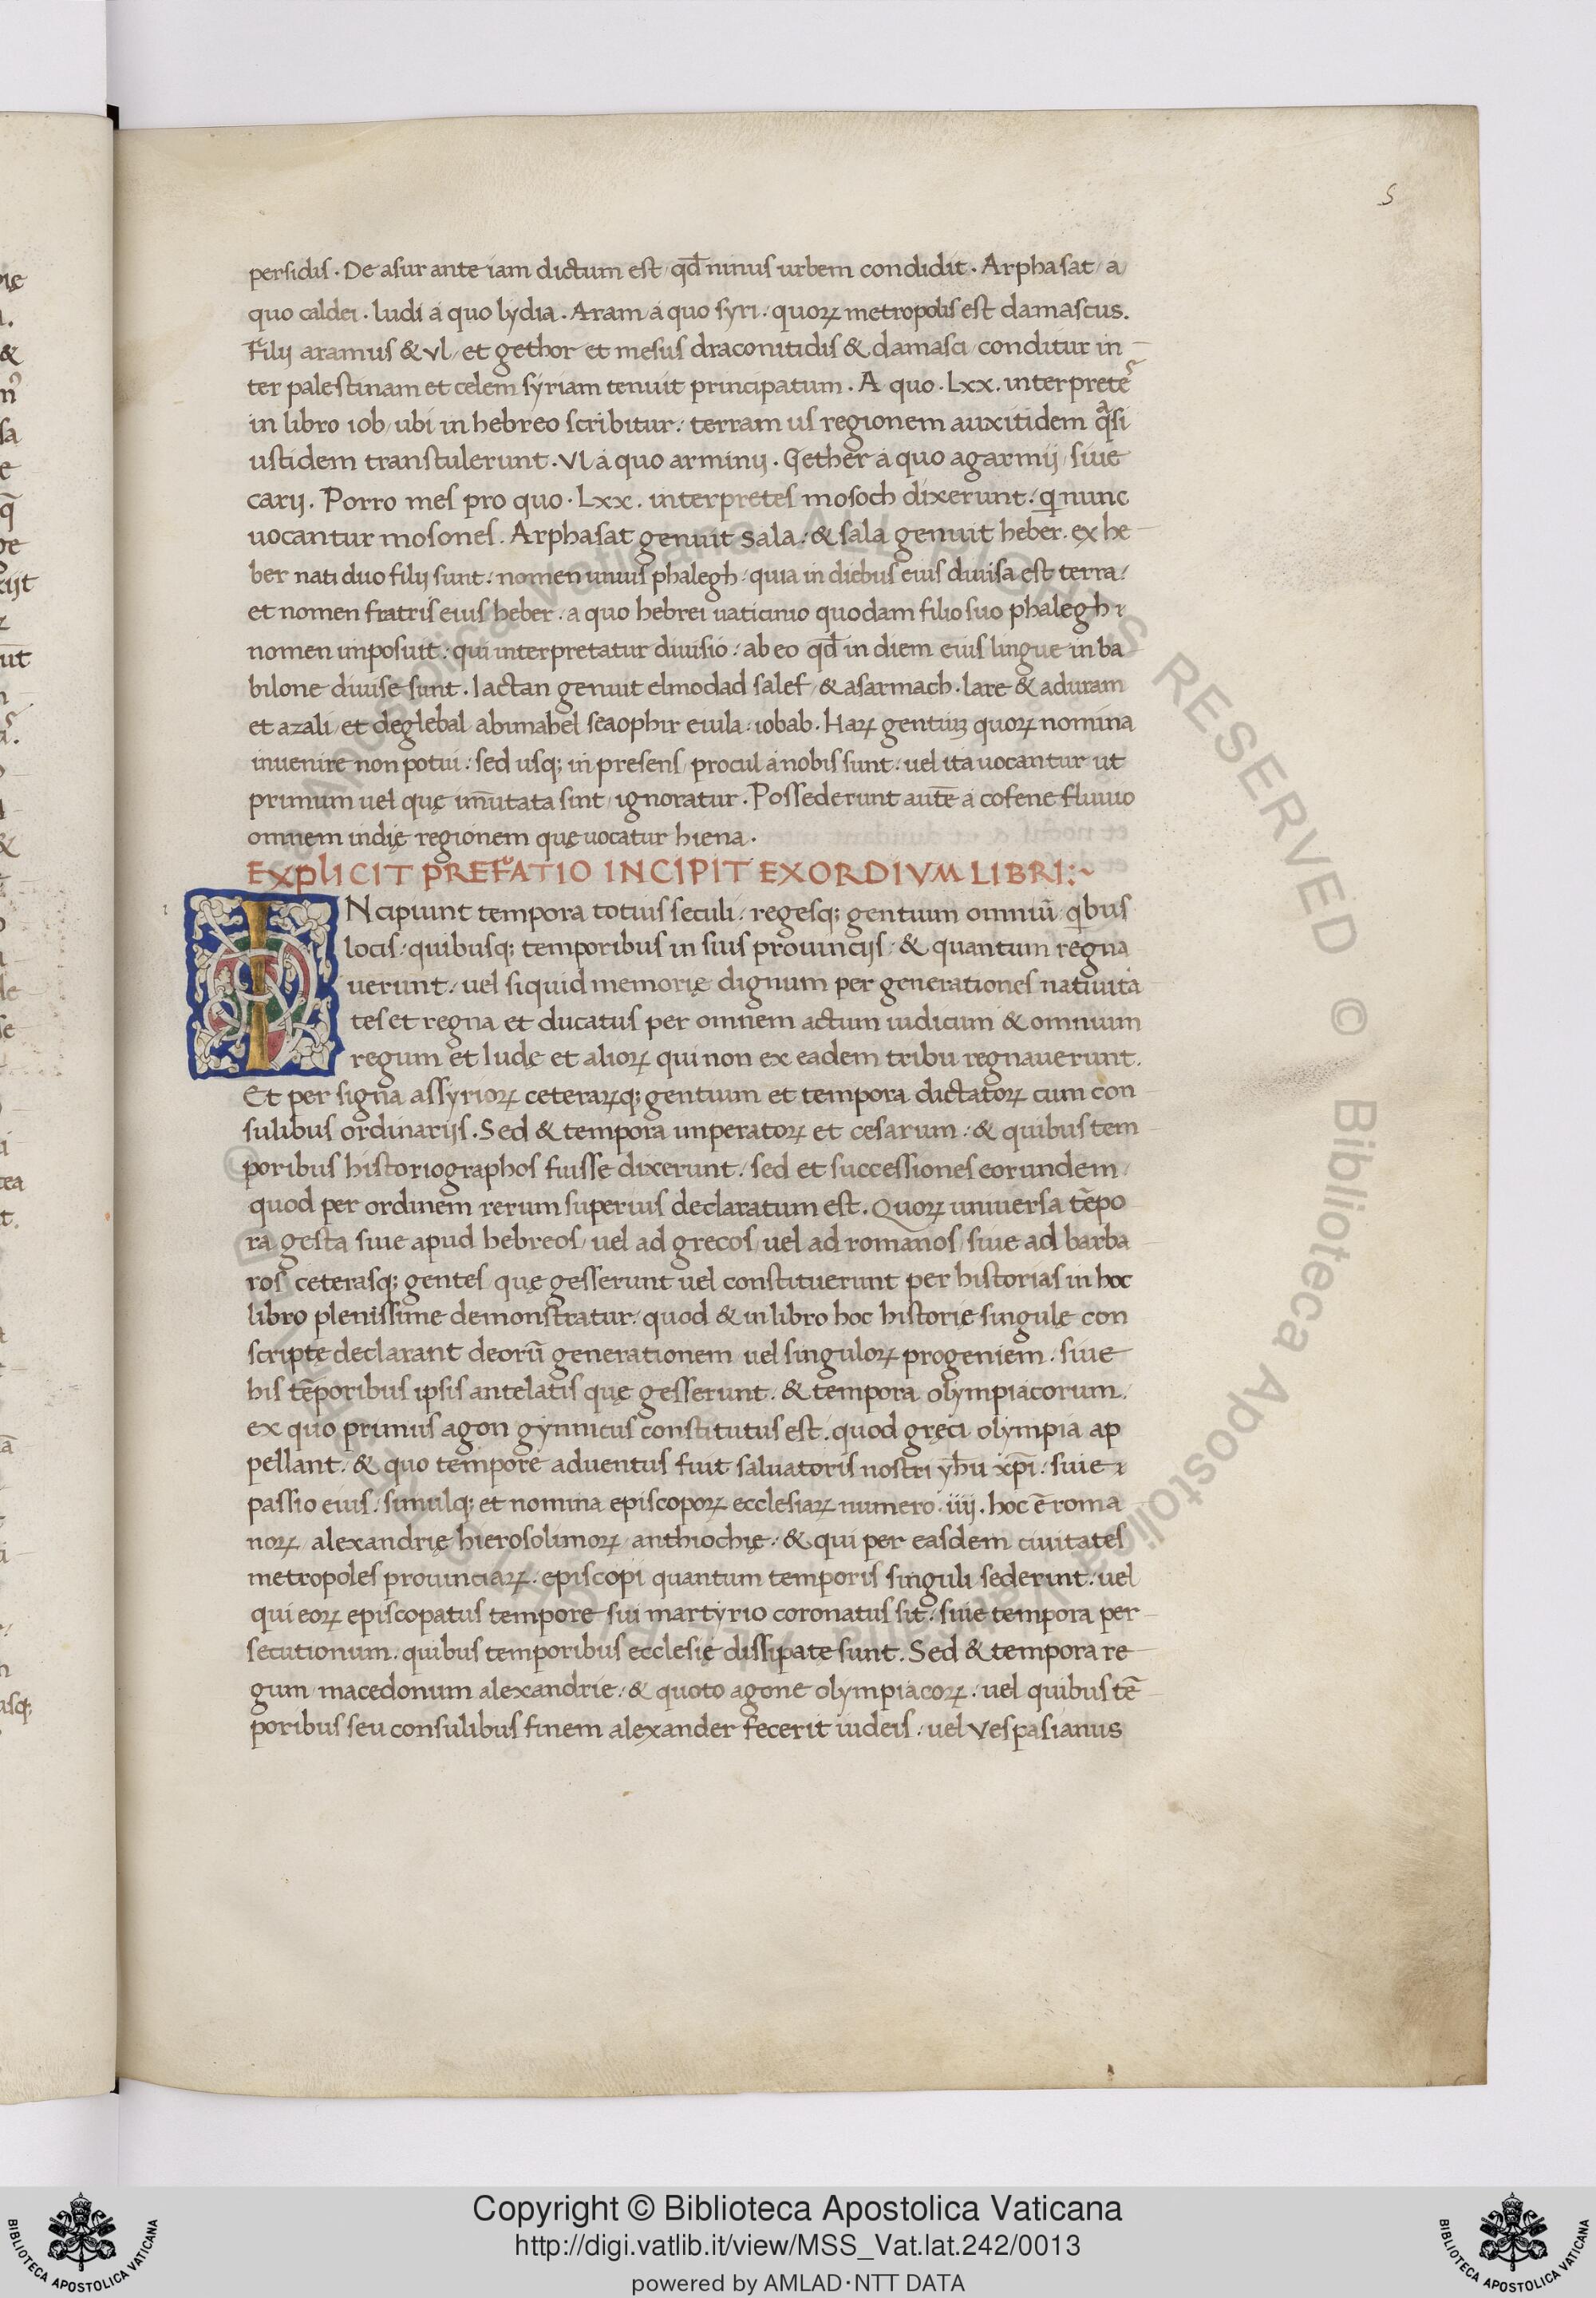 5
persidis. De asur ante iam dictum est qđ ninus urbem condidit. Arphasat a
quo caldei. ludi a quo lydia. Aram a quo syri: quoꝝ metropolis est damascus.
Filij aramus & vl et gethor et mesus draconitidis & damasci conditur in
ter palestinam et celem syriam tenuit principatum. A quo. Lxx. interpretes
in libro iob ubi in hebreo scribitur: terram us regionem auxitidem qᵃsi
ustidem transtulerunt. Vl a quo arminij. Gether a quo agarmij siue
carij. Porro mes pro quo. Lxx. interpretes mosoch dixerunt: qi nunc
uocantur mosones. Arphasat genuit sala: & sala genuit heber. ex he
ber nati duo filij sunt: nomen unius phalegh: quia in diebus eius diuisa est terra:
et nomen fratris eius heber: a quo hebrei uaticinio quodam filio suo phalegh
nomen imposuit: qui interpretatur diuisio: ab eo qđ in diem eius lingue in ba
bilone diuise sunt. Iactan genuit elmodad salef & asarmach. Iare & aduram
et azali et deglebal abimahel seaophir euila: iobab. Haꝝ gentiuꝫ quoꝝ nomina
inuenire non potui: sed usq; in presens procul a nobis sunt: uel ita uocantur ut
primum uel quę im̄utata sint ignoratur. Possederunt autē a cofene fluuio
omnem indię regionem quę uocatur hiena.
EXPLICIT PREFATIO INCIPIT EXORDIVM LIBRI:~
INcipiunt tempora totius seculi: regesq; gentium omniū qibus
locis: quibusq; temporibus in siuis prouincijs: & quantum regna
uerunt: uel siquid memorię dignum per generationes natiuita
tes et regna et ducatus per omnem actum iudicum & omnium
regum et Iudę et alioꝝ qui non ex eadem tribu regnauerunt.
Et per signa assyrioꝝ ceteraꝝq; gentium et tempora dictatoꝝ cum con
sulibus ordinarijs. Sed & tempora imperatoꝝ et cesarum: & quibus tem
poribus historiographos fuisse dixerunt: sed et successiones eorundem
quod per ordinem rerum superius declaratum est. Quoꝝ uniuersa tēpo
ra gesta siue apud hebreos uel ad grecos uel ad romanos siue ad barba
ros ceterasq; gentes quę gesserunt uel constituerunt per historias in hoc
libro plenissime demonstratur: quod & in libro hoc historię singulę con
scriptę declarant deorū generationem uel singuloꝝ progeniem: siue
his tēporibus ipsis antelatis quę gesserunt: & tempora olympiacorum:
ex quo primus agon gymnicus constitutus est: quod gręci olympia ap
pellant: & quo tempore aduentus fuit saluatoris nostri yh̄u xp̄i: siue
passio eius: simulq; et nomina episcopoꝝ ecclesiaꝝ numero. iiij. hoc ē roma
noꝝ alexandrię hierosolimoꝝ anthiochię: & qui per easdem ciuitates
metropoles prouinciaꝝ: episcopi quantum temporis singuli sederint: uel
qui eoꝝ episcopatus tempore sui martyrio coronatus sit: siue tempora per
secutionum: quibus temporibus ecclesię dissipatę sunt. Sed & tempora re
gum macedonum alexandrie: & quoto agone olympiacoꝝ: uel quibus tē
poribus seu consulibus finem alexander fecerit iudeis: uel Vespasianus
Copyright © Biblioteca Apostolica Vaticana
http://digi.vatlib.it/view/MSS_Vat.lat.242/0013
powered by AMLAD·NTT DATA
BIBLIOTECA APOSTOLICA VATICANA
BIBLIOTECA APOSTOLICA VATICANA